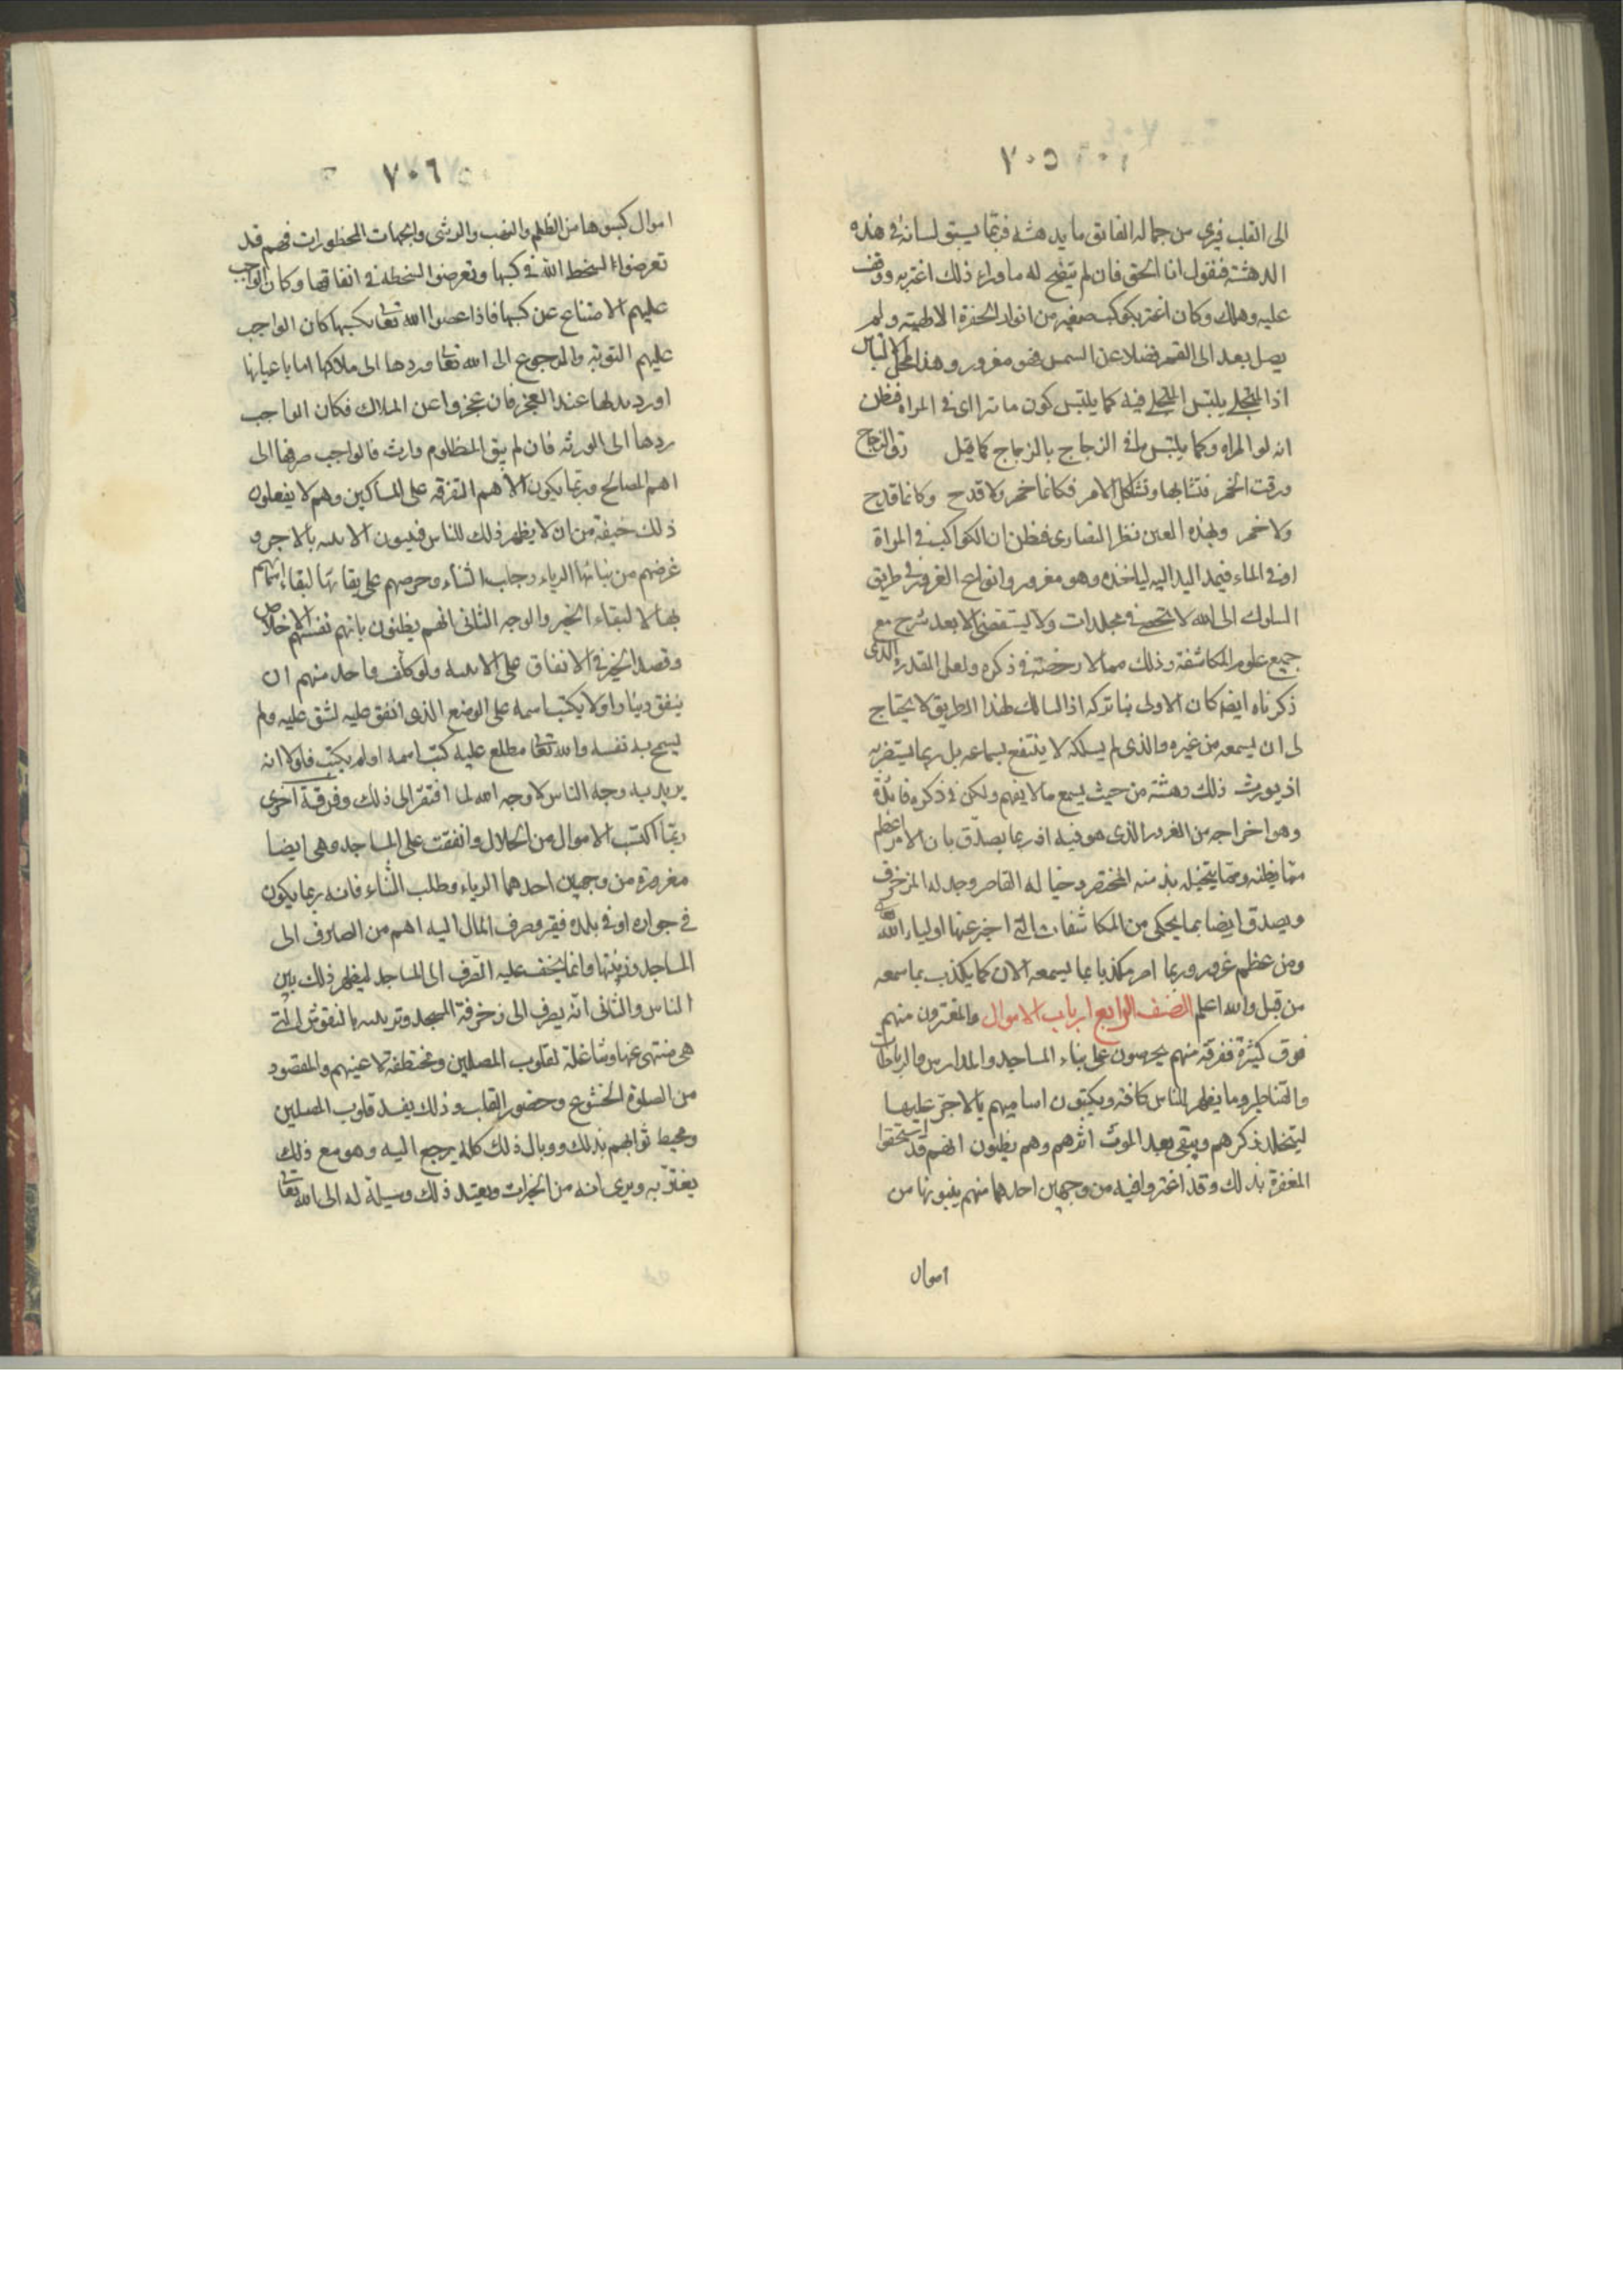 ٧٠٥
الى القلب فيرى من جماله الفائق ما يدهشه فربما يسبق لسانه فى هذه
الدهشة فيقول انا الحق فان لم يتضح له ما وراء ذلك اغتر به ووقف
عليه وهلك وكان اغتر بكوكب صغير من انوار الحضرة الالهية ولم
يصل بعد الى القمر فضلا عن الشمس فهو مغرور وهذا محل الالتباس
اذ المتجلى يلتبس بالمتجلى فيه كما يلتبس كون ما تراأى فى المراة فظن
انه لو المراه وكما يلتبس ما فى الزجاج بالزجاج كما قيل رق الزجاج
ورقت الخمر فتشابها وتشاكل الامر فكانما خمر ولا قدح وكانما قدح
ولا خمر وبهذه العين نظر النصارى فظن ان الكواكب فى المراة
او فى الماء فيمد اليد اليه لياخذه وهو مغرور وانواع الغرور فى طريق
السلوك الى الله لا تحصى فى مجلدات ولا يستقصى الا بعد شرح مع
جميع علوم المكاشفة وذلك مما لا رخصة فى ذكره ولعل المقدر الذى
ذكرناه ايضا كان الاولى بنا تركه اذ السالك لهذا الطريق لا يحتاج
لى ان يسمعه من غيره والذى لم يسلكه لا ينتفع بسماعه بل ربما يستضر به
اذ يورث ذلك دهشة من حيث يسمع ما لا يفهم ولكن فى ذكره فائدة
وهو اخراجه من الغرور الذى هو فيه اذ ربما يصدق بان الامر اعظم
مما يظنه ومما يتخيله بذهنه المختصر وخياله القاصر وجدله المزخرف
ويصدق ايضا بما يحكى من المكاشفات التى اخبر عنها اولياء الله
ومن عظم غروره ربما اصر مكذبا بما يسمعه الان كما يكذب بما سمعه
من قبل والله اعلم الصنف الرابع ارباب الاموال والمغترون منهم
فرق كثيرة ففرقة منهم يحرصون على بناء المساجد والمدارس والرباطات
والقناطر وما يظهر للناس كافة ويكتبون اساميهم بالاجر عليها
ليتخلد ذكرهم ويبقى بعد الموت اثرهم وهم يظنون انهم قد استحقوا
المغفرة بذلك وقد اغتروا فيه من وجهين احدهما منهم يبنونها من
اموال
٧٠٦
اموال كسبوها من الظلم والنهب والرشى والجهات المحظورات فهم قد
تعرضوا لسخط الله فى كسبها وتعرضوا لسخطه فى انفاقها وكان الواجب
عليهم الامتناع عن كسبها فاذا عصوا الله تعا بكسبها كان الواجب
عليهم التوبة والرجوع الى الله تعا وردها الى ملاكها اما باعيانها
او رد بدلها عند العجز فان عجزوا عن الملاك فكان الواجب
ردها الى الورثة فان لم يبق للمظلوم وارث فالواجب صرفها الى
اهم المصالح وربما يكون الاهم التفرقة على المساكين وهم لا يفعلون
ذلك خيفة من ان لا يظهر ذلك للناس فيبنون الابنيه بالاجر و
غرضهم من بنائها الرياء وجلب الثناء وحرصهم على بقائها لبقاء اسمائهم
بها لا لبقاء الخير والوجه الثانى انهم يظنون بانهم نفسهم الاخلاص
وقصد الخير فى الانفاق على الابنيه ولو كلف واحد منهم ان
ينفق دينارا ولا يكتب اسمه على الموضع الذى انفق عليه لشق عليه ولم
يسمح به نفسه والله تعا مطلع عليه كتب اسمه او لم يكتب فلولا انه
يريد به وجه الناس لا وجه الله لما افتقر الى ذلك وفرقة اخرى
ربما اكتسب الاموال من الحلال وانفقت على المساجد وهى ايضا
مغرورة من وجهين احدهما الرياء وطلب الثناء فانه ربما يكون
فى جواره او فى بلده فقير وصرف المال اليه اهم من الصرف الى
المساجد وزينتها وانما يخف عليه الصرف الى المساجد ليظهر ذلك بين
الناس والثانى انه يصرف الى زخرفة المسجد وتزيينه بالنقوش التى
هى منتهى عنها وشاغلة لقلوب المصلين ومختطفة لاعينهم والمقصود
من الصلوة الخشوع وحضور القلب وذلك يفسد قلوب المصلين
ومحبط ثوابهم بذلك ووبال ذلك كله يرجع اليه وهو مع ذلك
يغتر به ويرى انه من الخيرات ويعتد ذلك وسيلة له الى الله تعا